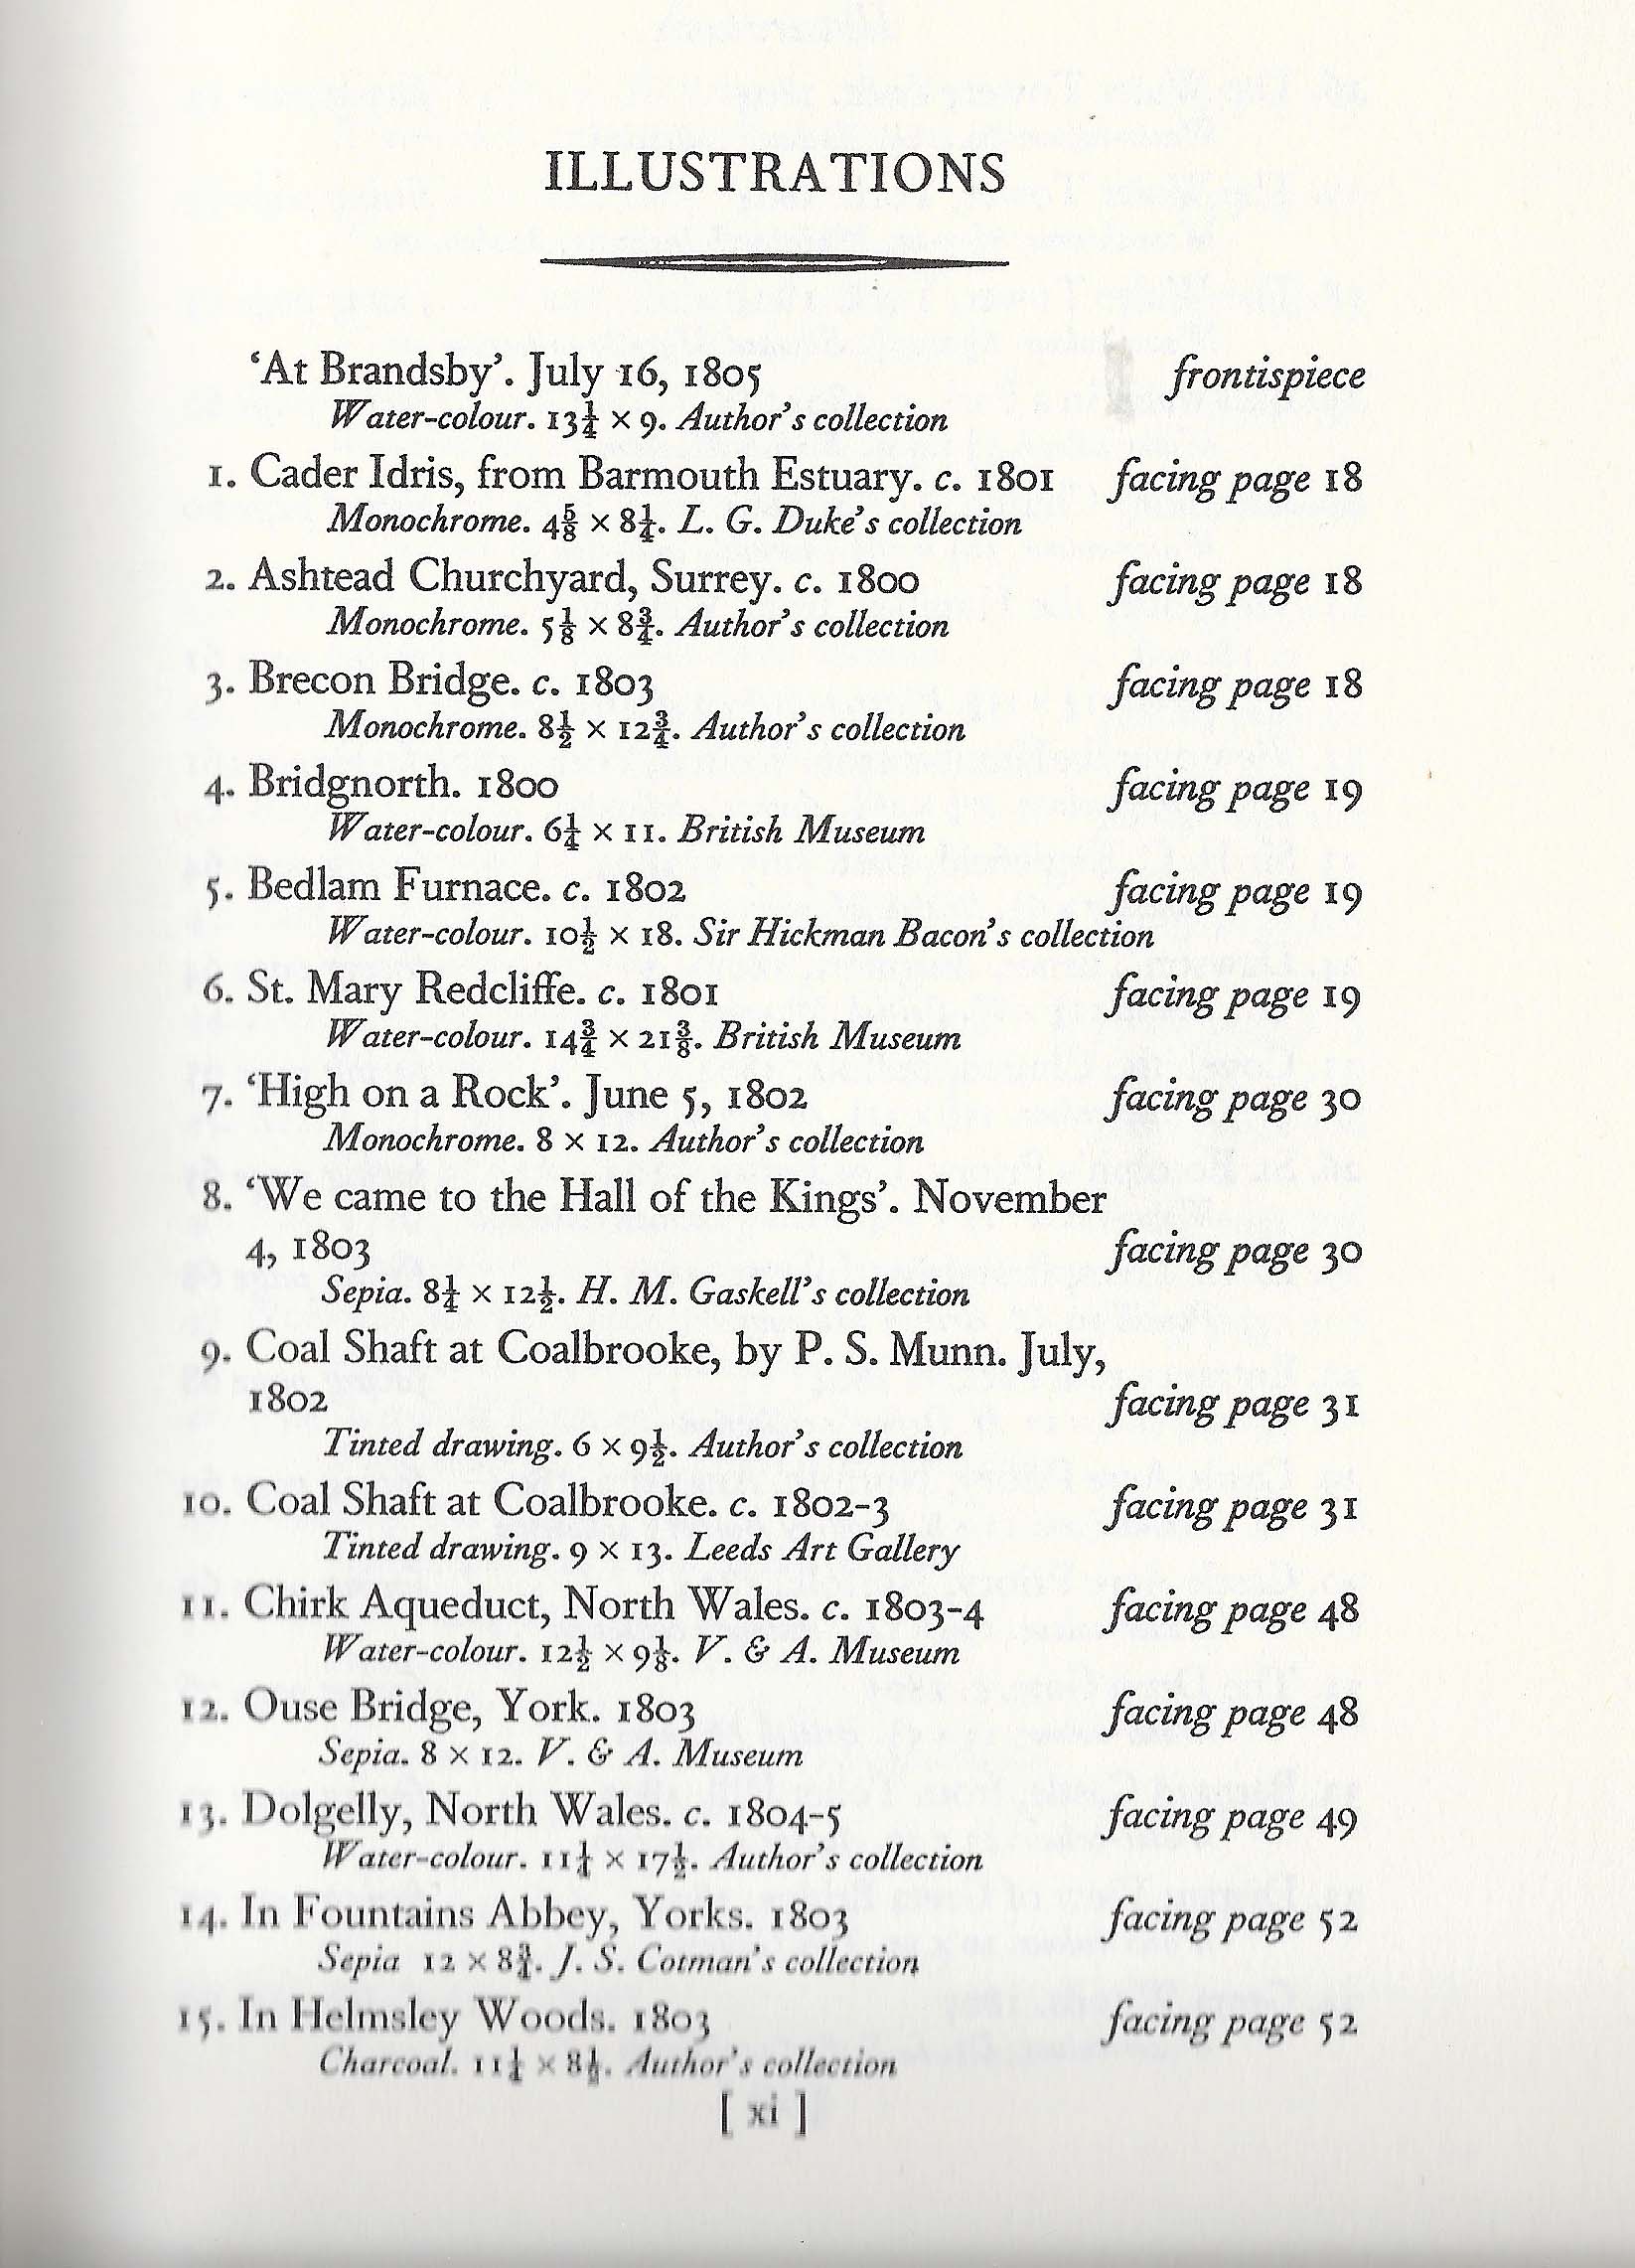 ILLUSTRATIONS
‘At Brandsby’. July 16, 1805 frontispiece
Water-colour. 13¼ × 9. Author’s collection
1. Cader Idris, from Barmouth Estuary. c. 1801 facing page 18
Monochrome. 4⅝ × 8¼. L. G. Duke’s collection
2. Ashtead Churchyard, Surrey. c. 1800 facing page 18
Monochrome. 5⅛ × 8¾. Author’s collection
3. Brecon Bridge. c. 1803 facing page 18
Monochrome. 8½ × 12¾. Author’s collection
4. Bridgnorth. 1800 facing page 19
Water-colour. 6¼ × 11. British Museum
5. Bedlam Furnace. c. 1802 facing page 19
Water-colour. 10½ × 18. Sir Hickman Bacon’s collection
6. St. Mary Redcliffe. c. 1801 facing page 19
Water-colour. 14¾ × 21⅜. British Museum
7. ‘High on a Rock’. June 5, 1802 facing page 30
Monochrome. 8 × 12. Author’s collection
8. ‘We came to the Hall of the Kings’. November
4, 1803 facing page 30
Sepia. 8¼ × 12½. H. M. Gaskell’s collection
9. Coal Shaft at Coalbrooke, by P. S. Munn. July,
1802 facing page 31
Tinted drawing. 6 × 9½. Author’s collection
10. Coal Shaft at Coalbrooke. c. 1802-3 facing page 31
Tinted drawing. 9 × 13. Leeds Art Gallery
11. Chirk Aqueduct, North Wales. c. 1803-4 facing page 48
Water-colour. 12½ × 9⅛. V. & A. Museum
12. Ouse Bridge, York. 1803 facing page 48
Sepia. 8 × 12. V. & A. Museum
13. Dolgelly, North Wales. c. 1804-5 facing page 49
Water-colour. 11¼ × 17½. Author’s collection
14. In Fountains Abbey, Yorks. 1803 facing page 52
Sepia 12 × 8¾. J. S. Cotman’s collection
15. In Helmsley Woods. 1803 facing page 52
Charcoal. 11¼ × Author’s collection
[ xi ]